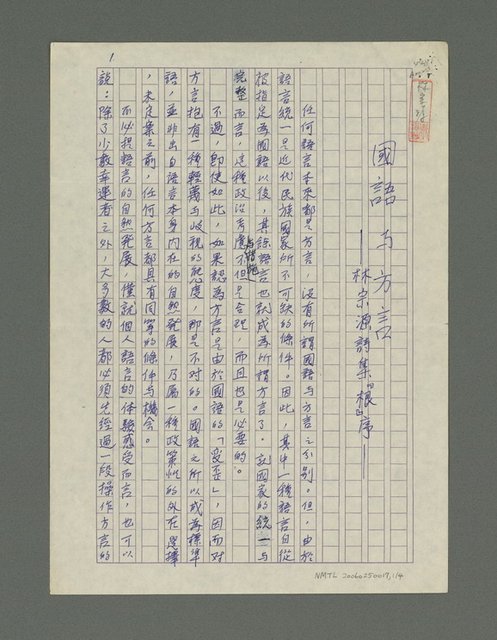 國語与方言
——林宗源詩集『根』序——
任何語言本來都是方言，沒有所謂國語与方言之分別。但，由於
語言統一是近代民族國家所不可缺的條件。因此，其中一種語言自從
被指定為國語以後，其餘語言也就成為所謂方言了。就國家的統一与
完整而言，這種政治考慮与措施不但是合理，而且也是必要的。
不過，即使如此，如果認為方言是由於國語的「歪」，因而對
方言抱有一種輕蔑与歧視的態度，那是不對的。國語之所以成為標準
語，並非出自語言本身內在的自然發展，乃屬一種政策性的外在選擇
，未定案之前，任何方言都具有同等的條件与機會。
而必提語言的自然發展，僅就個人語言的体驗感受而言，也可以
說：除了少數幸運者之外，大多數的人都必須先經過一段操作方言的
1
NMTL 20060250017, 1/4